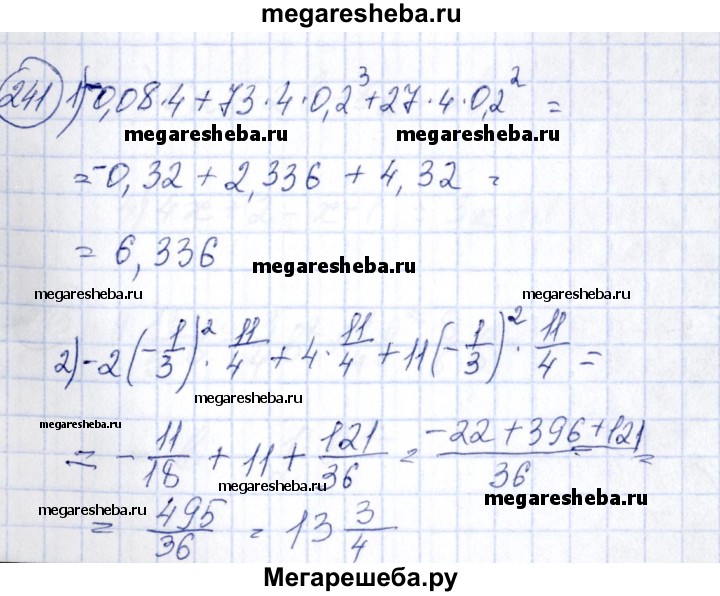 megaresheba.ru
241 1) -0,08·4+73·4·0,2³+27·4·0,2² =
megaresheba.ru megaresheba.ru
= -0,32 + 2,336 + 4,32 =
= 6,336
megaresheba.ru
megaresheba.ru megaresheba.ru
2) -2(-1/3)² · 11/4 + 4 · 11/4 + 11(-1/3)² · 11/4 =
megaresheba.ru
megaresheba.ru
= - 11/18 + 11 + 121/36 = (-22+396+121)/36 =
megaresheba.ru
megaresheba.ru megaresheba.ru
= 495/36 = 13 3/4
Мегарешеба.ру